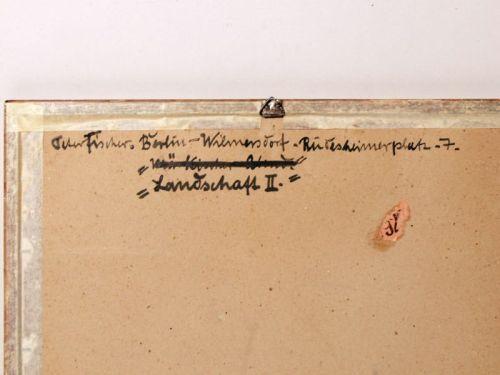 Peter Fischer. Berlin - Wilmersdorf. Rüdesheimerplatz - 7.
"Landschaft II."